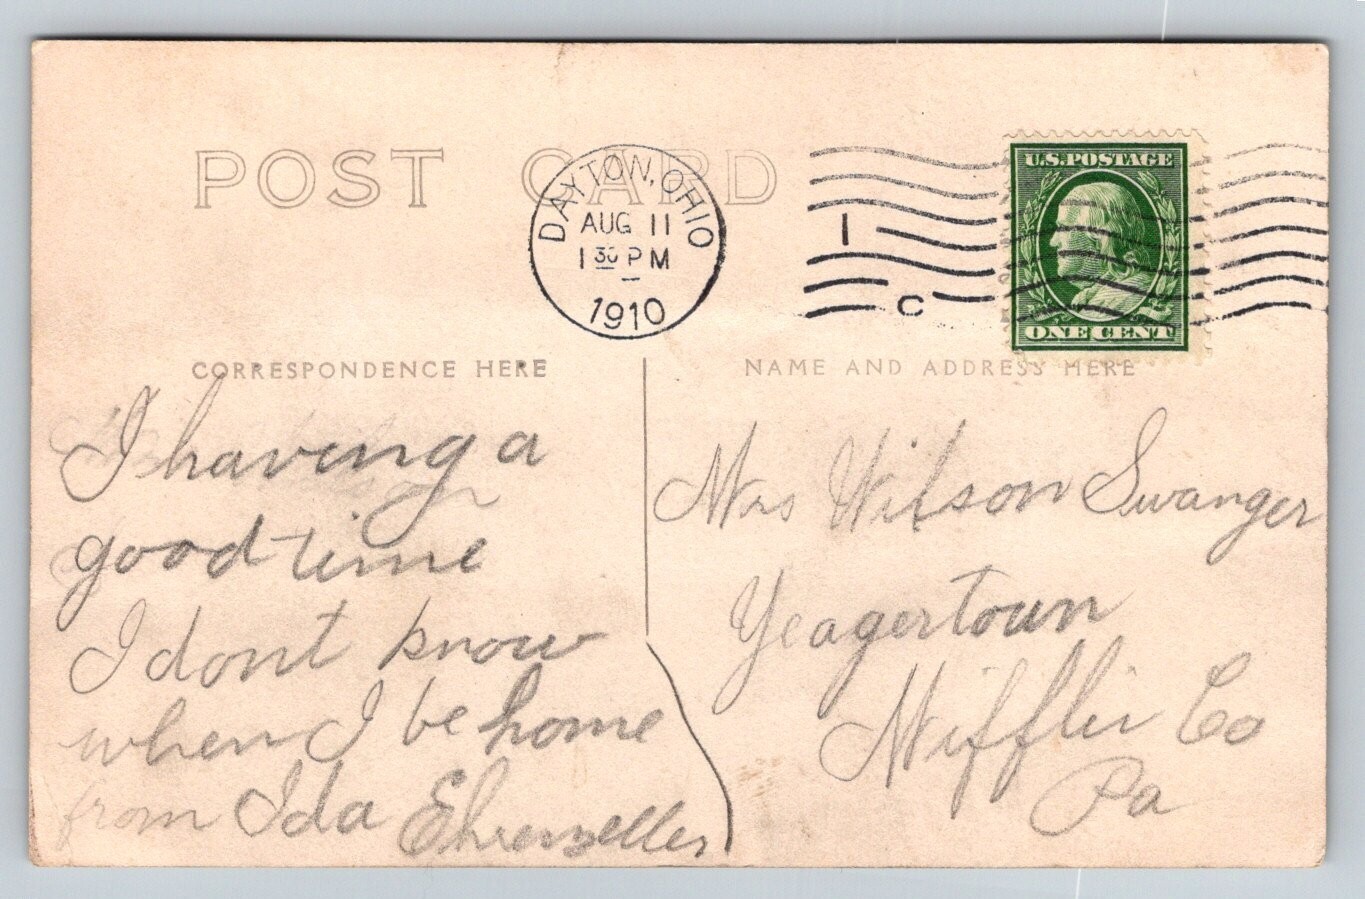 POST CARD
DAYTON, OHIO
AUG 11
1 30 PM
1910
1
C
U.S. POSTAGE
ONE CENT
CORRESPONDENCE HERE
I having a
good time
I dont know
when I be home
from Ida Ehrenzeller
NAME AND ADDRESS HERE
Mrs Wilson Swanger
Yeagertown
Mifflin Co
Pa